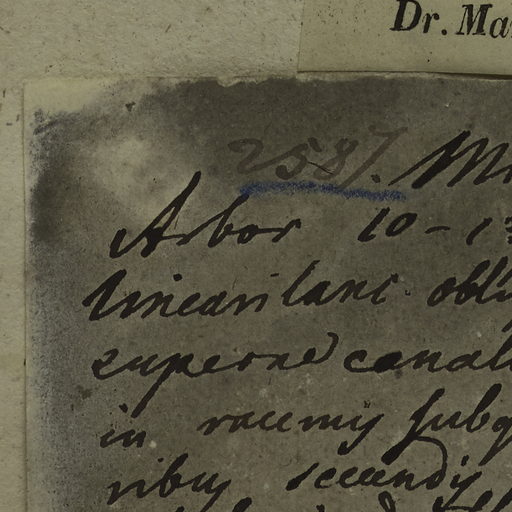 Dr. Ma
2587. M
Arbor 10-1
lineari lanc. obl
superne canal
in racemis subq
ribus secundis